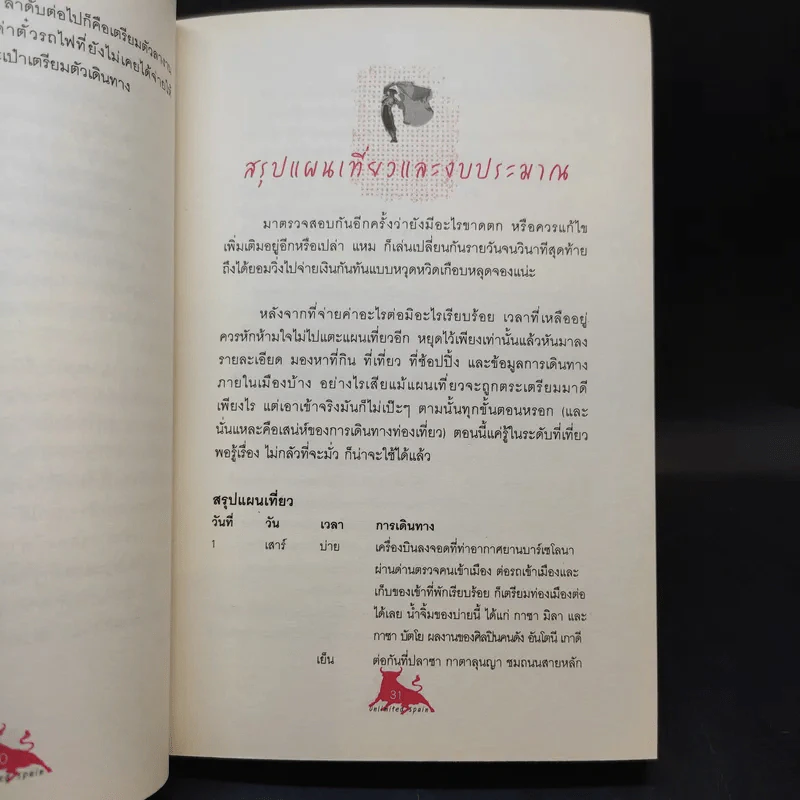 ลำดับต่อไปก็คือเตรียมตัวลางาน
ค่าตั๋วรถไฟที่ยังไม่เคยได้จ่ายให้
เป๋าเตรียมตัวเดินทาง
สรุปแผนเที่ยวและงบประมาณ
มาตรวจสอบกันอีกครั้งว่ายังมีอะไรขาดตก หรือควรแก้ไข
เพิ่มเติมอยู่อีกหรือเปล่า แหม ก็เล่นเปลี่ยนกันรายวันจนวินาทีสุดท้าย
ถึงได้ยอมวิ่งไปจ่ายเงินกันทันแบบหวุดหวิดเกือบหลุดจองแน่ะ
หลังจากที่จ่ายค่าอะไรต่อมิอะไรเรียบร้อย เวลาที่เหลืออยู่
ควรหักห้ามใจไม่ไปแตะแผนเที่ยวอีก หยุดไว้เพียงเท่านั้นแล้วหันมาลง
รายละเอียด มองหาที่กิน ที่เที่ยว ที่ช้อปปิ้ง และข้อมูลการเดินทาง
ภายในเมืองบ้าง อย่างไรเสียแม้แผนเที่ยวจะถูกตระเตรียมมาดี
เพียงไร แต่เอาเข้าจริงมันก็ไม่เป๊ะๆ ตามนั้นทุกขั้นตอนหรอก (และ
นั่นแหละคือเสน่ห์ของการเดินทางท่องเที่ยว) ตอนนี้แค่รู้ในระดับที่เที่ยว
พอรู้เรื่อง ไม่กลัวที่จะมั่ว ก็น่าจะใช้ได้แล้ว
สรุปแผนเที่ยว
วันที่ วัน เวลา การเดินทาง
1 เสาร์ บ่าย เครื่องบินลงจอดที่ท่าอากาศยานบาร์เซโลนา
ผ่านด่านตรวจคนเข้าเมือง ต่อรถเข้าเมืองและ
เก็บของเข้าที่พักเรียบร้อย ก็เตรียมท่องเมืองต่อ
ได้เลย น้ำจิ้มของบ่ายนี้ ได้แก่ กาซา มิลา และ
กาซา บัตโย ผลงานของศิลปินคนดัง อันโตนี เกาดี
เย็น ต่อกันที่ปลาซา กาตาลุนญา ชมถนนสายหลัก
31
Unlimited Spain
0
d spain